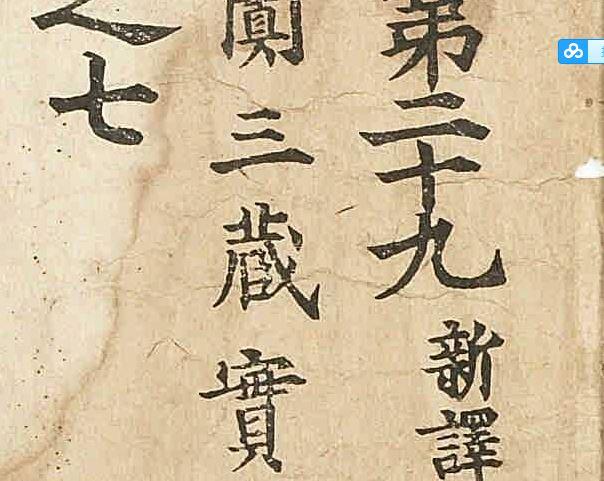 第二十九 新譯
闐三藏實
之七